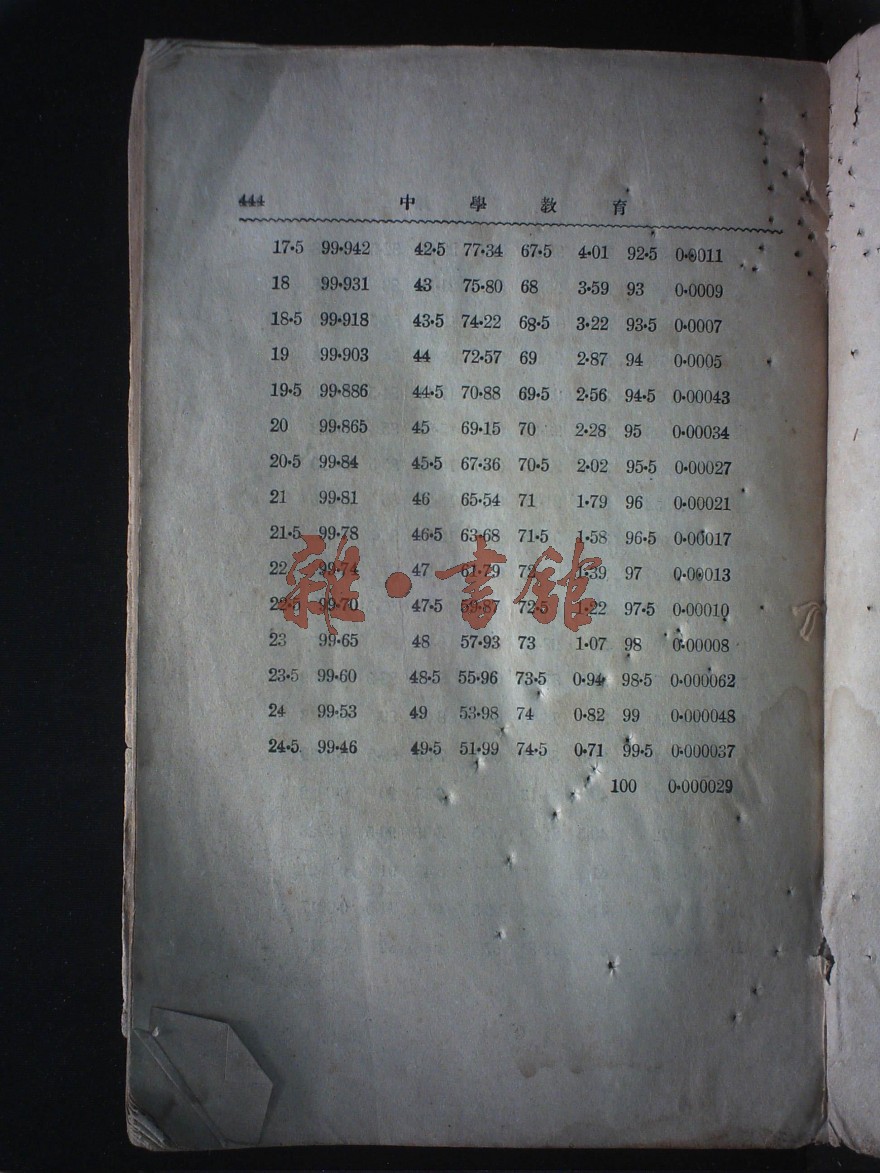 444 中學教育
17·5 99·942 42·5 77·34 67·5 4·01 92·5 0·0011
18 99·931 43 75·80 68 3·59 93 0·0009
18·5 99·918 43·5 74·22 68·5 3·22 93·5 0·0007
19 99·903 44 72·57 69 2·87 94 0·0005
19·5 99·886 44·5 70·88 69·5 2·56 94·5 0·00043
20 99·865 45 69·15 70 2·28 95 0·00034
20·5 99·84 45·5 67·36 70·5 2·02 95·5 0·00027
21 99·81 46 65·54 71 1·79 96 0·00021
21·5 99·78 46·5 63·68 71·5 1·58 96·5 0·00017
22 99·74 47 61·79 72 1·39 97 0·00013
22·5 99·70 47·5 59·87 72·5 1·22 97·5 0·00010
23 99·65 48 57·93 73 1·07 98 0·00008
23·5 99·60 48·5 55·96 73·5 0·94 98·5 0·000062
24 99·53 49 53·98 74 0·82 99 0·000048
24·5 99·46 49·5 51·99 74·5 0·71 99·5 0·000037
100 0·000029
雜·書館